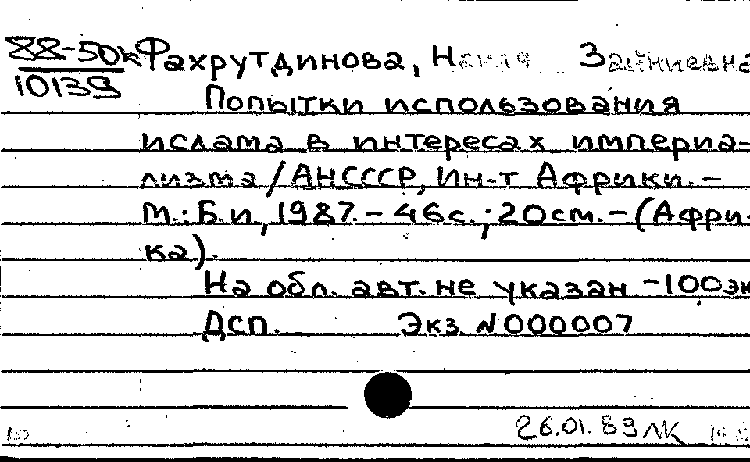 88-50к Фахрутдинова, Наиля Зайниевна
10139
Попытки использования
ислама в интересах империа-
лизма / АН СССР, Ин-т Африки. –
М.: Б. и., 1987. – 46 с.; 20 см. – (Афри-
ка).
На обл. авт. не указан – 100 эк
Дсп. Экз. N 000007
26.01.89 ЛК